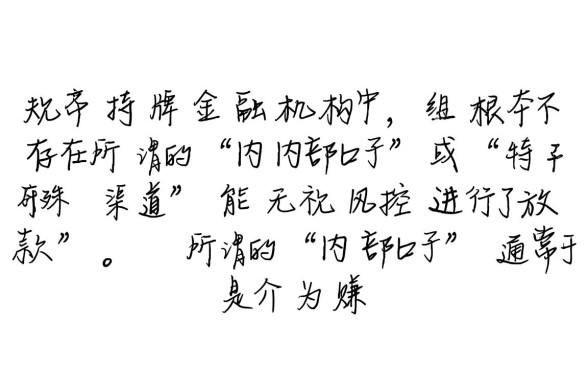 规帝持牌金融机构中，组根本不
存在所谓的“内内部口子”或“特子
殊 渠道”能无视风控进行了放
款”。 所谓的“内部口子”通常于
是介为赚